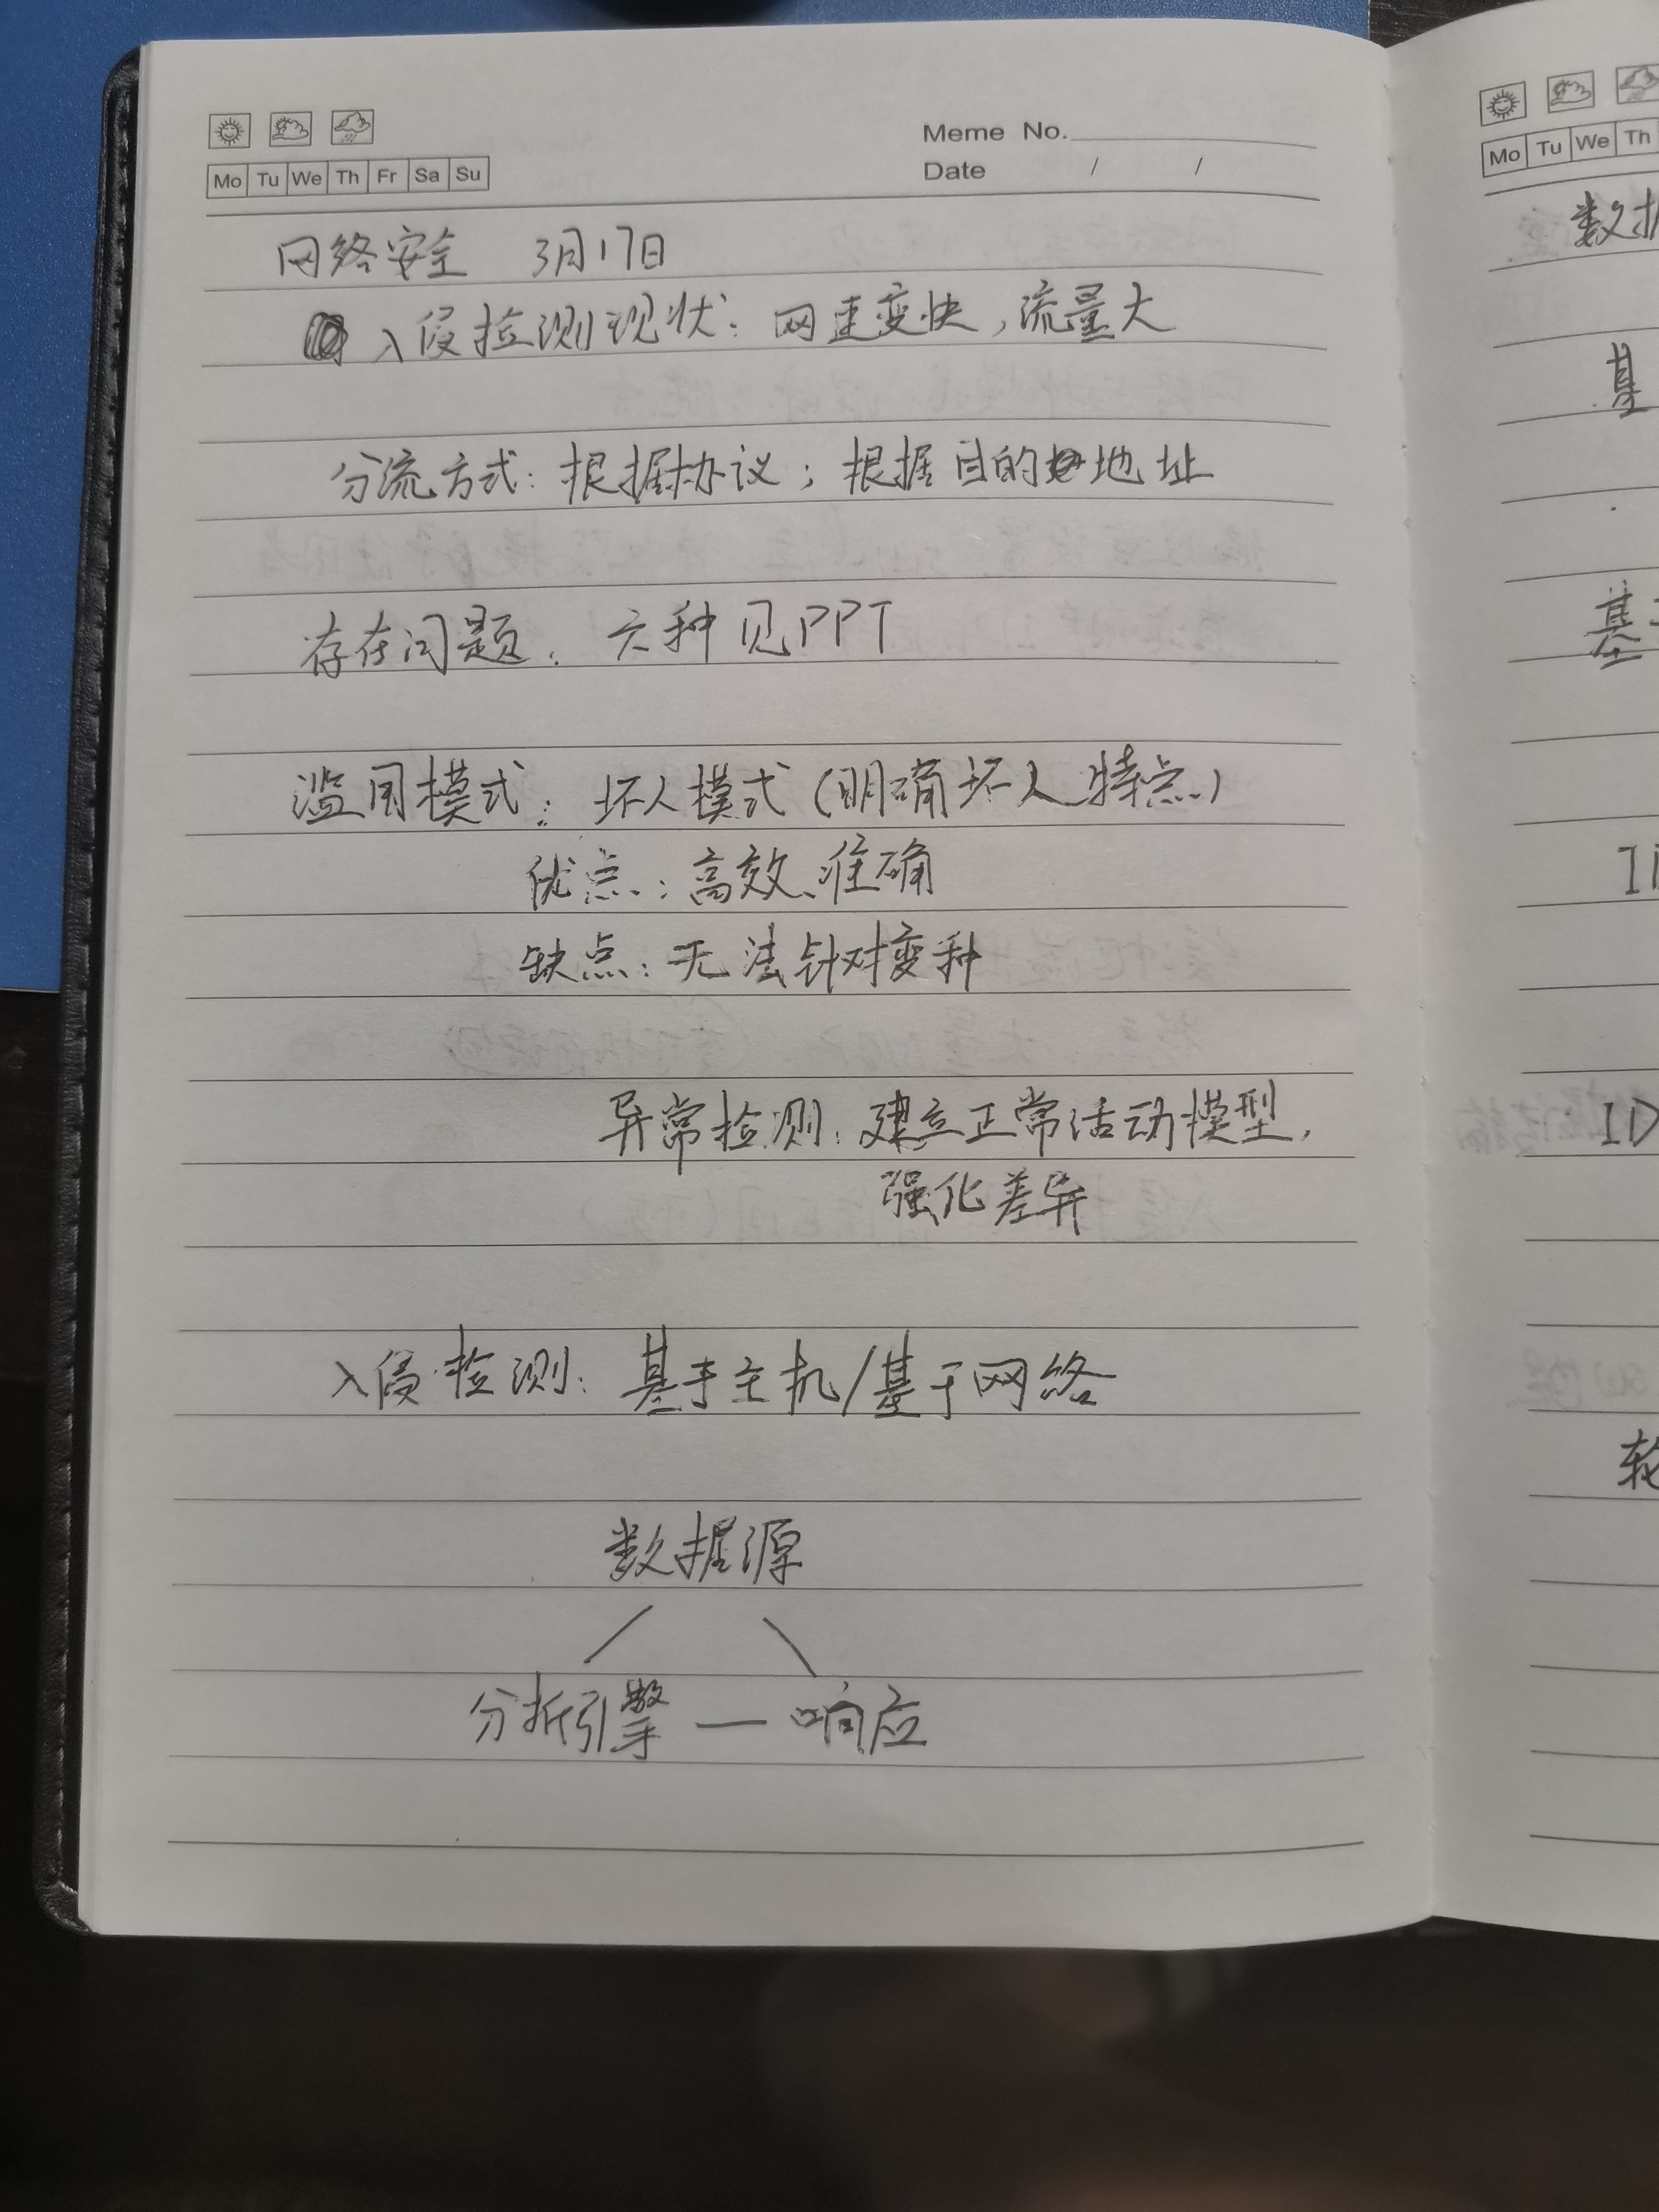 Meme No.
Date / /
Mo Tu We Th Fr Sa Su
网络安全 3月17日
入侵检测现状：网速变快，流量大
分流方式：根据协议；根据目的地址
存在问题：六种见PPT
滥用模式：坏人模式（明确坏人特点）
优点：高效、准确
缺点：无法针对变种
异常检测：建立正常活动模型，
强化差异
入侵检测：基于主机/基于网络
数据源
分析引擎 — 响应
Mo Tu We Th
数据
基
基于
ID